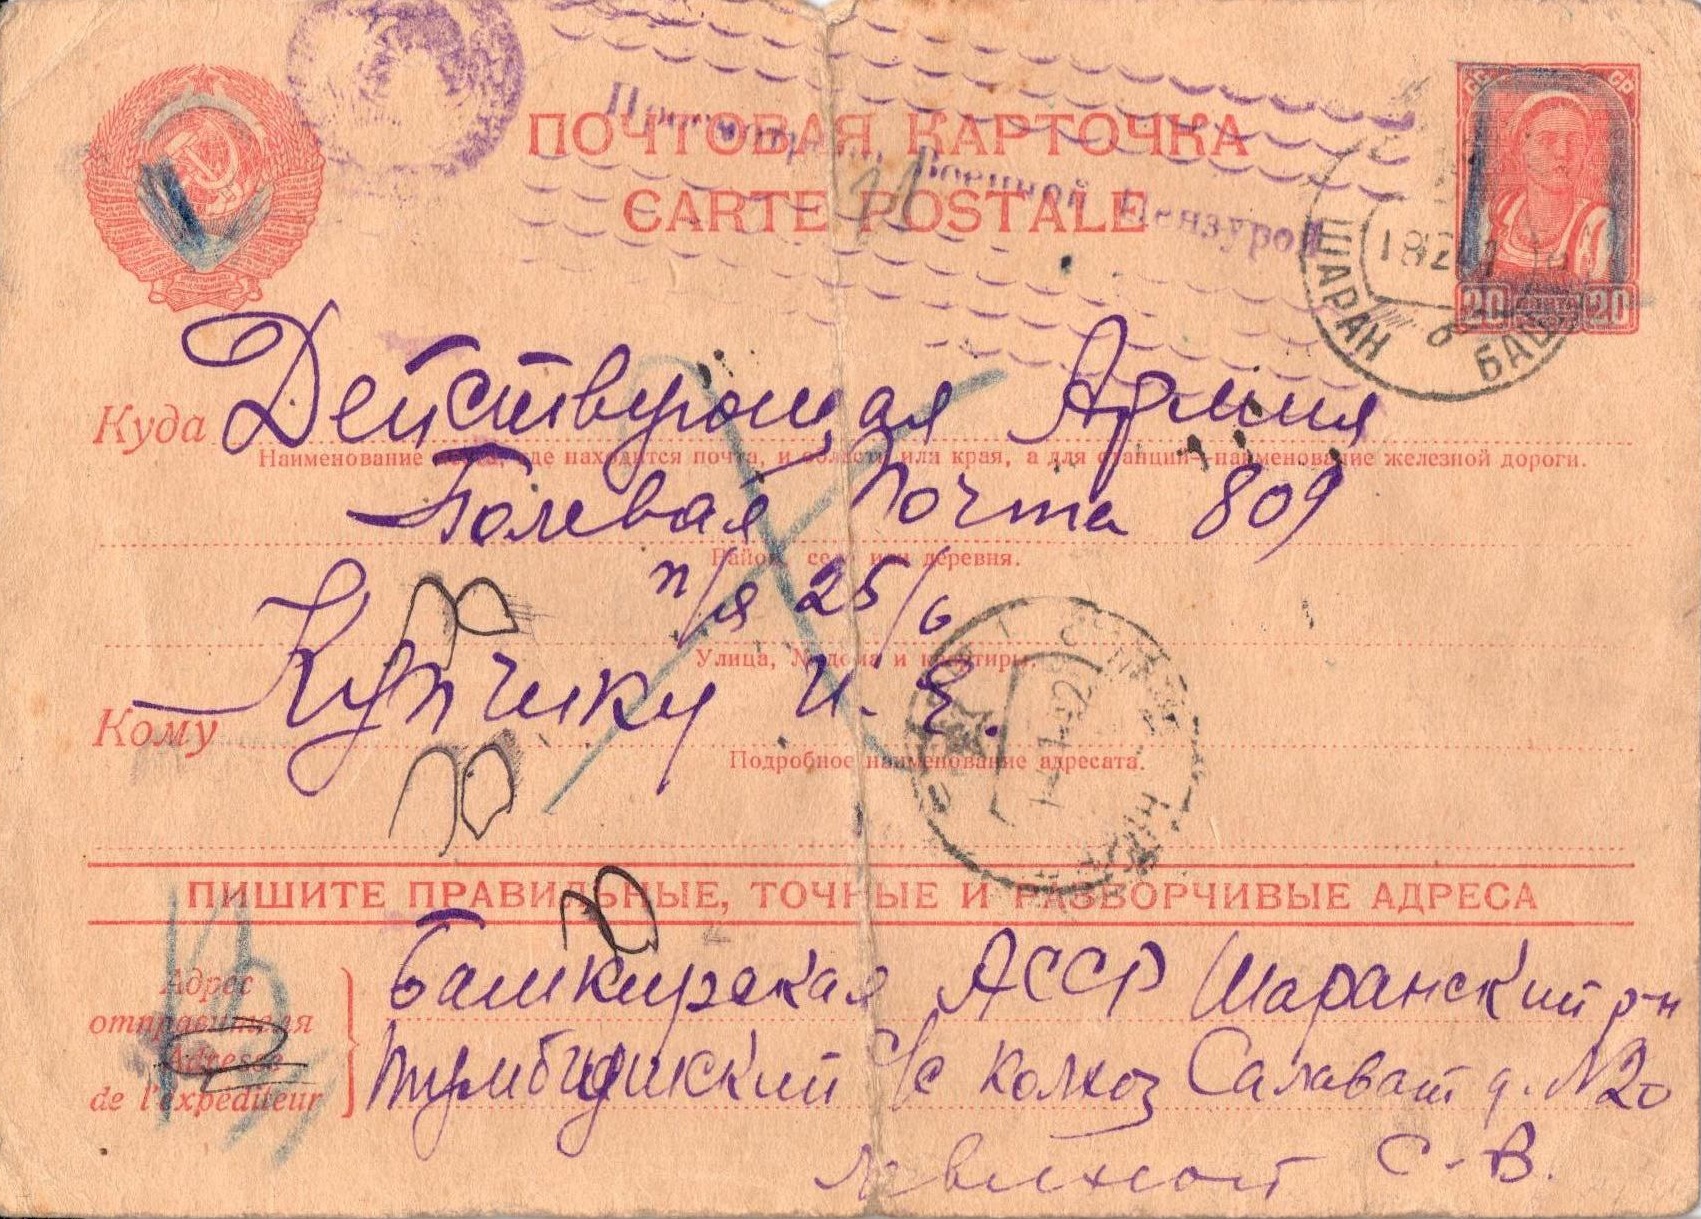 ПОЧТОВАЯ КАРТОЧКА
CARTE POSTALE
Просмотрено Военной Цензурой
11
20 20
ШАРАН БАШ
Куда Действующая Армия
Наименование места, где находится почта, и области или края, а для станции—наименование железной дороги.
Полевая Почта 809
Район, село или деревня.
п/я 25/6
Улица, № дома и квартиры.
Кому Купчику И. Е.
Подробное наименование адресата.
ПИШИТЕ ПРАВИЛЬНЫЕ, ТОЧНЫЕ И РАЗБОРЧИВЫЕ АДРЕСА
Адрес отправителя
Adresse de l'expéditeur
Башкирская АССР Шаранский р-н
с/с колхоз Салават д. №20
С. В.